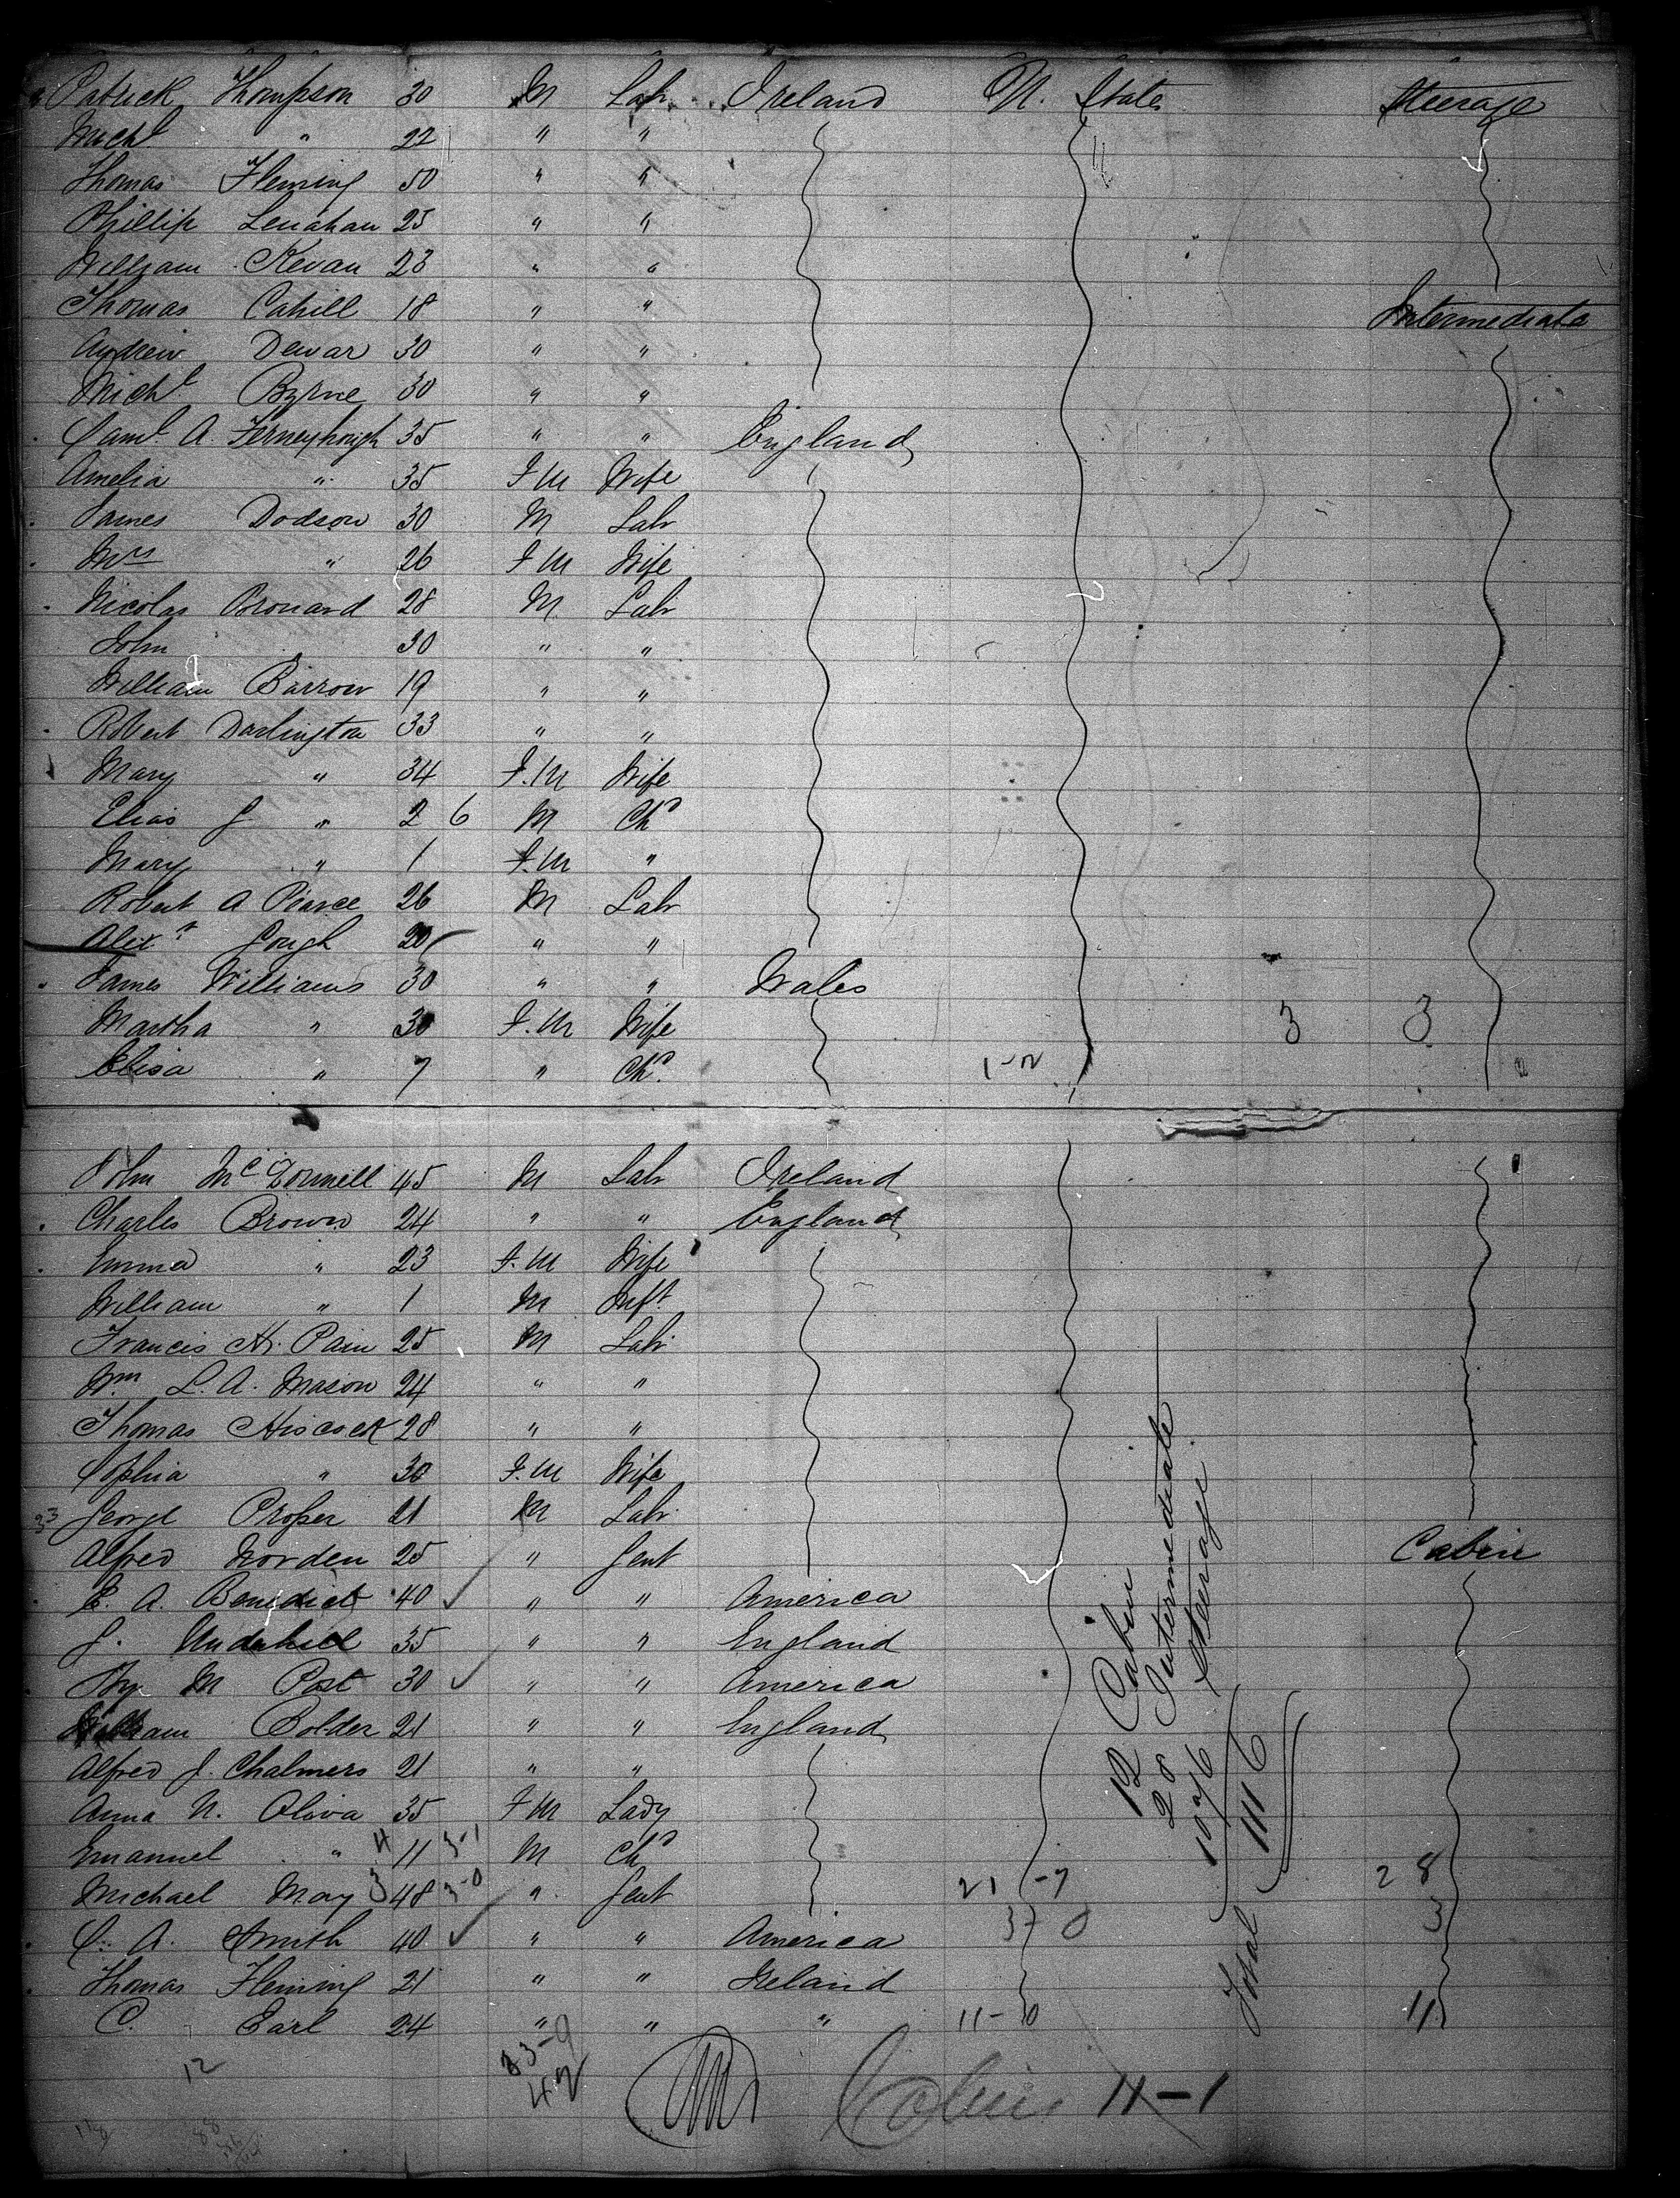 Patrick Thompson 30 M Labr Ireland U. States Steerage
Michl " 22 " "
Thomas Fleming 50 " "
Phillip Lenahan 25 " "
William Kevan 23 " "
Thomas Cahill 18 " " Intermediate
Andrew Dewar 30 " "
Michl Byrne 30 " "
Saml. A. Ferneyhough 35 " " England
Amelia " 35 F M Wife
James Dodson 30 M Labr
Mrs " 26 F M Wife
Nicolas Bronard 28 M Labr
John 30 " "
William Barrow 19 " "
Robert Darlington 33 " "
Mary " 34 F.M Wife
Elias J " 2 6 M Chd
Mary " 1 F.M "
Robert A Pearce 26 M Labr
Alexr Gough 20 " "
James Williams 30 " " Wales
Martha " 30 F.M Wife 3 3
Elisa " 7 " Chd.
John McDonnell 45 M Labr Ireland
Charles Brown 24 " " England
Emma " 23 F.M Wife
William " 1 M Inft.
Francis H. Pain 25 M Labr
Wm L. A. Mason 24 " "
Thomas Hiscock 28 " "
Sophia " 30 F.M Wife
George Proper 21 M Labr
Alfred Worden 25 " Gent Cabin
E. A. Benedict 40 " " America
J. Underhill 35 " " England
Hy M Post 30 " " America
William Bolder 21 " " England
Alfred J. Chalmers 21 " "
Anna N. Oliva 35 F M Lady
Emanuel " 11 M Chd
Michael May 48 " Gent 21 -7 28
S. A. Smith 40 " " America 3
Thomas Fleming 21 " " Ireland
C. Earl 24 " " " 11-0 11
12 Cabin
28 Intermediate
1076 Steerage
Total 1116
12
33-9
42
Cabin 11-1